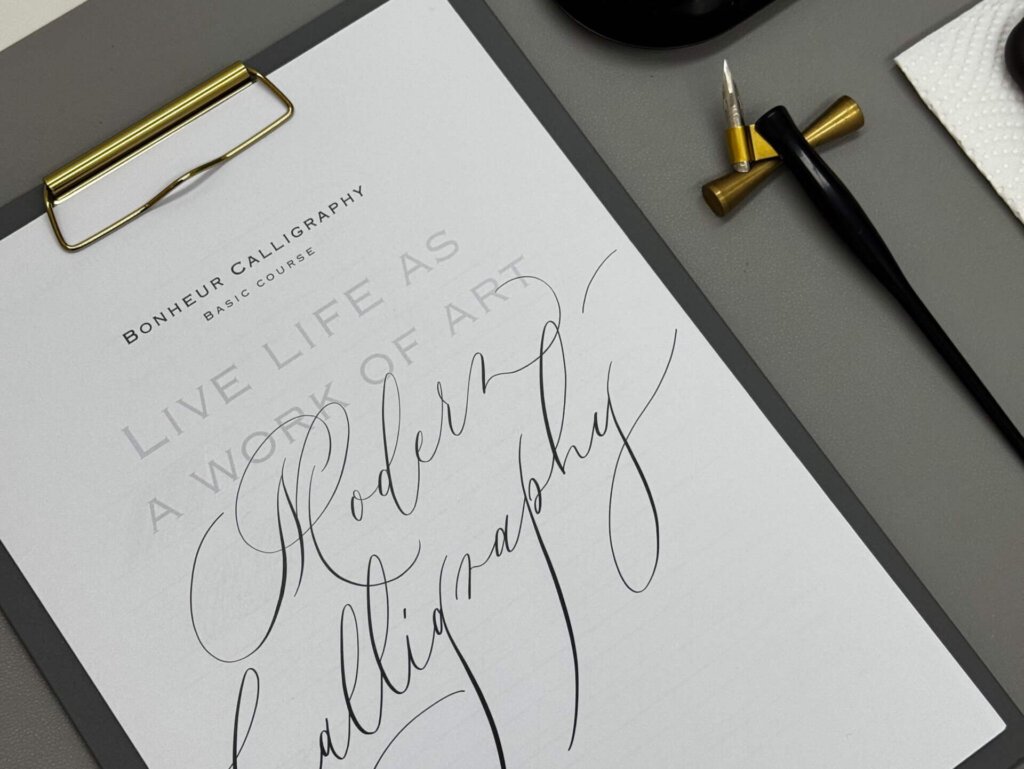 BONHEUR CALLIGRAPHY
BASIC COURSE
LIVE LIFE AS
A WORK OF ART
Modern
Calligraphy